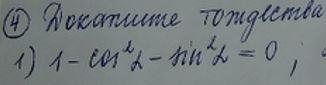 ④ Докажите тождества
1) 1 - cos²α - sin²α = 0 ;